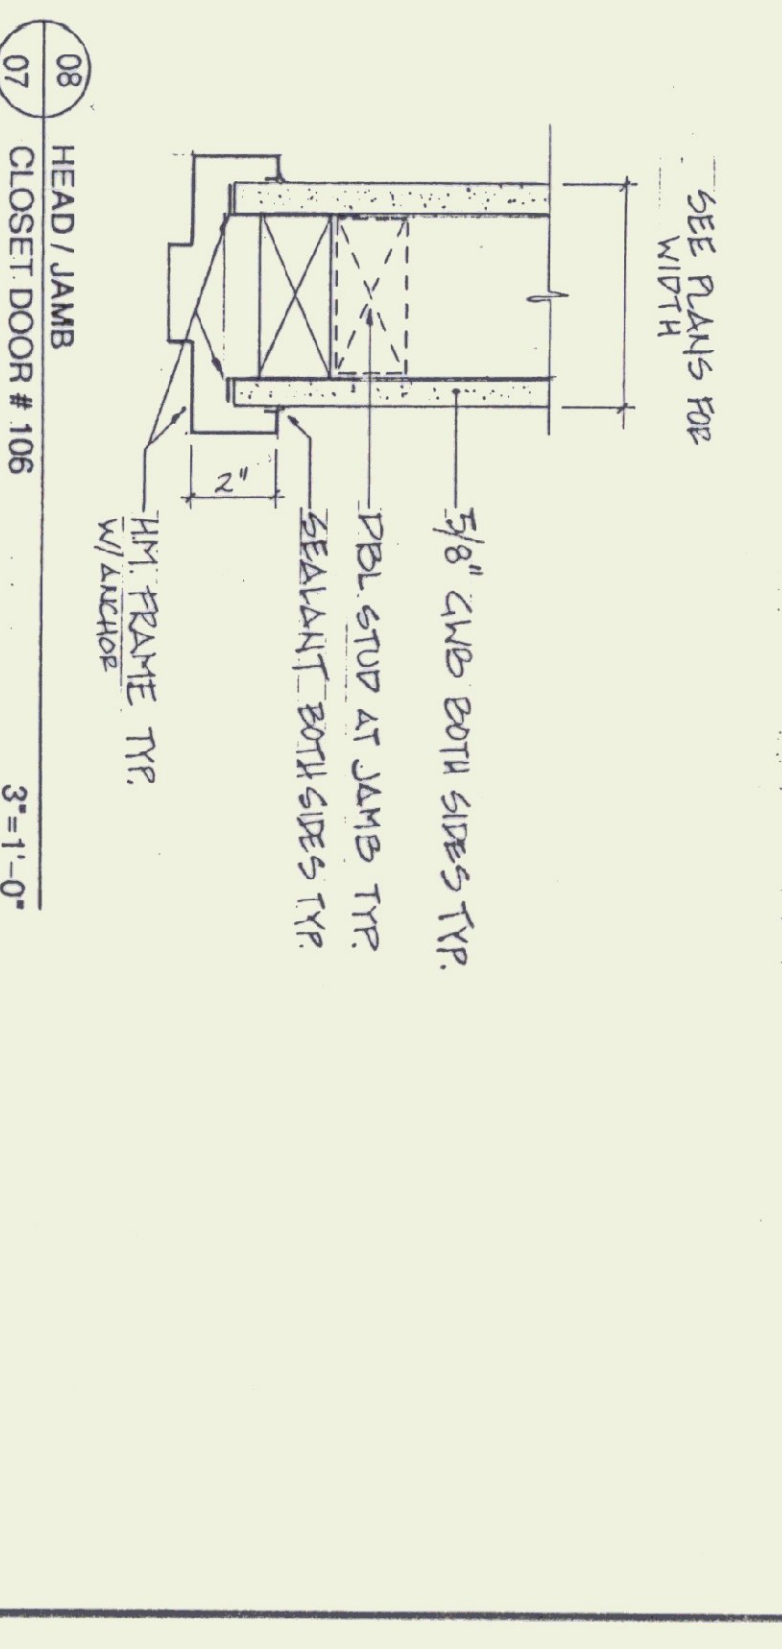 SEE PLANS FOR
WIDTH
5/8" GWB BOTH SIDES TYP.
DBL. STUD AT JAMB TYP.
SEALANT BOTH SIDES TYP.
2"
H.M. FRAME TYP.
W/ ANCHOR
08
HEAD / JAMB
07
CLOSET DOOR # 106
3"=1'-0"